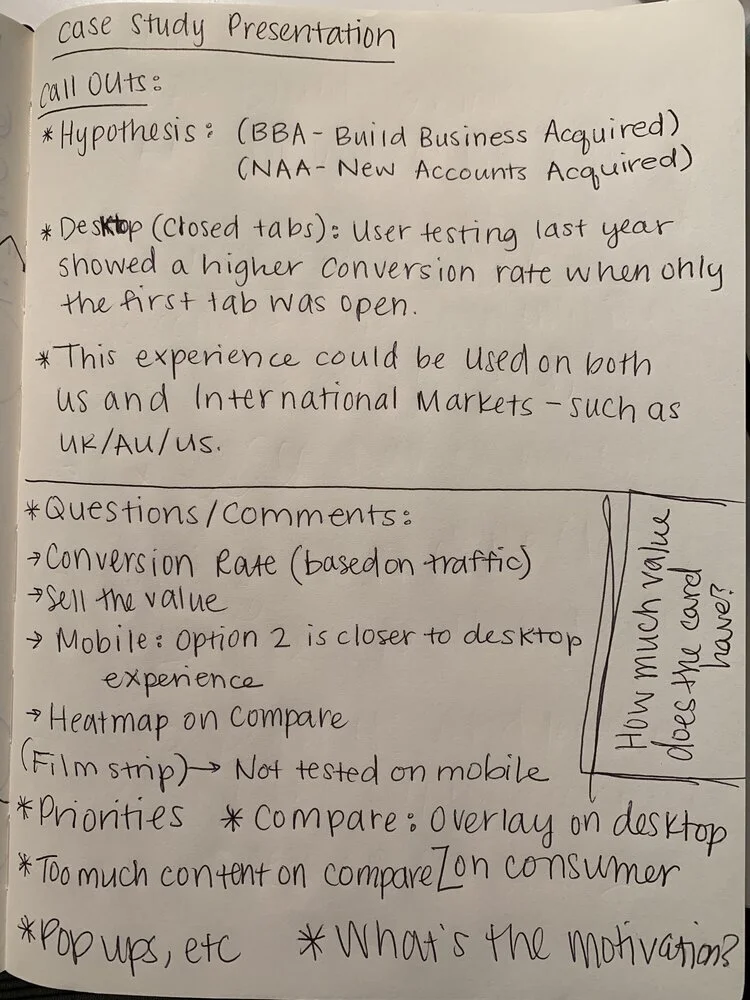 Case Study Presentation
Call Outs:
* Hypothesis: (BBA - Build Business Acquired)
(NAA - New Accounts Acquired)
* Desktop (Closed tabs): User testing last year
showed a higher conversion rate when only
the first tab was open.
* This experience could be used on both
US and International Markets - such as
UK/AU/US.
* Questions/Comments:
→ Conversion Rate (based on traffic)
→ Sell the value
→ Mobile: Option 2 is closer to desktop
experience
→ Heatmap on Compare
(Film strip) → Not tested on mobile
How much value
does the card
have?
* Priorities * Compare: Overlay on desktop
* Too much content on compare on consumer
* Pop ups, etc * What's the motivation?